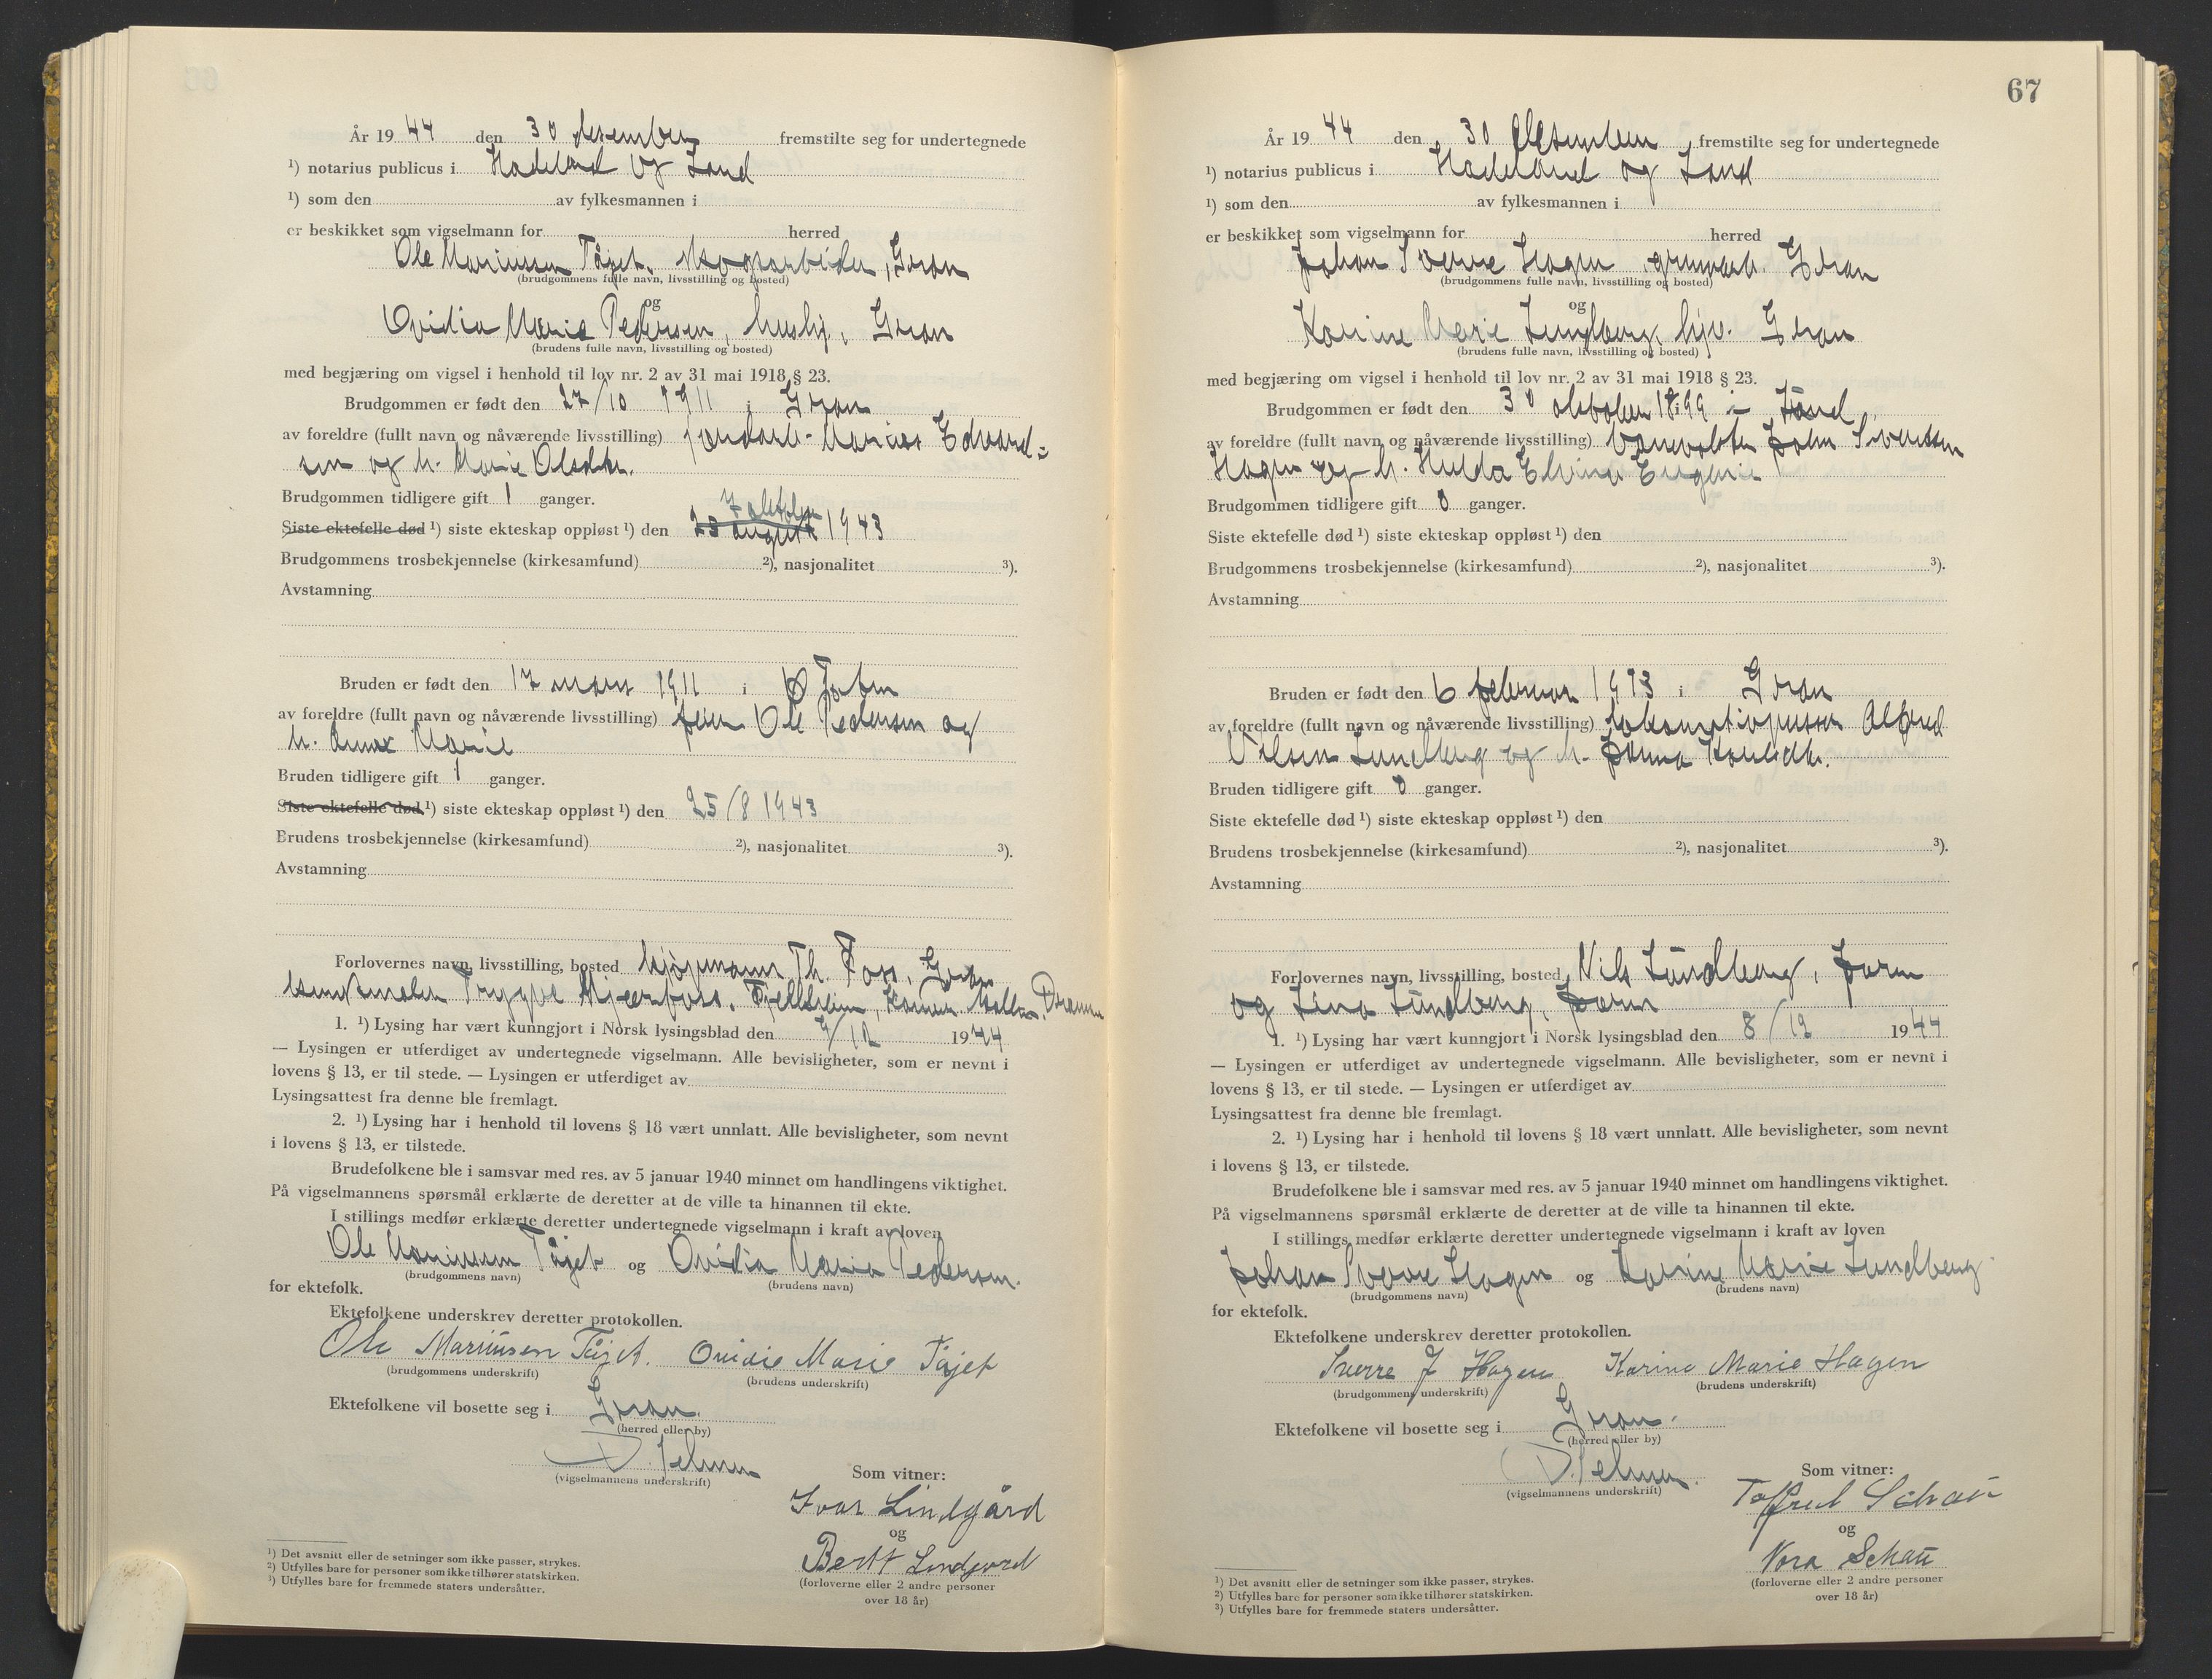 År 19 44 den 30 desember fremstilte seg for undertegnede
¹) notarius publicus i Hadeland og Land
¹) som den av fylkesmannen i
er beskikket som vigselmann for herred
Ole Mariussen Tåjet, skogsarbeider, Gran
(brudgommens fulle navn, livsstilling og bosted)
og
Ovidia Marie Pedersen, hushj., Gran
(brudens fulle navn, livsstilling og bosted)
med begjæring om vigsel i henhold til lov nr. 2 av 31 mai 1918 § 23.
Brudgommen er født den 27/10 1911 i Gran
av foreldre (fullt navn og nåværende livsstilling) Marius Edvard-
sen og h. Marie Olsdtr.
Brudgommen tidligere gift 1 ganger.
7 oktober
Siste ektefelle død ¹) siste ekteskap oppløst ¹) den 25 august 1943
Brudgommens trosbekjennelse (kirkesamfund) ²), nasjonalitet ³).
Avstamning
Bruden er født den 17 mars 1911 i Ø Toten
av foreldre (fullt navn og nåværende livsstilling) Ole Pedersen og
h. Anna Marie
Bruden tidligere gift 1 ganger.
Siste ektefelle død ¹) siste ekteskap oppløst ¹) den 25/8 1943
Brudens trosbekjennelse (kirkesamfund) ²), nasjonalitet ³).
Avstamning
Forlovernes navn, livsstilling, bosted kjøpmann Th. Foss, Gran
kunstmaler Trygve Fjellheim, Dramm
1. ¹) Lysing har vært kunngjort i Norsk lysingsblad den /12 1944
— Lysingen er utferdiget av undertegnede vigselmann. Alle bevisligheter, som er nevnt i
lovens § 13, er til stede. — Lysingen er utferdiget av
Lysingsattest fra denne ble fremlagt.
2. ¹) Lysing har i henhold til lovens § 18 vært unnlatt. Alle bevisligheter, som nevnt
i lovens § 13, er tilstede.
Brudefolkene ble i samsvar med res. av 5 januar 1940 minnet om handlingens viktighet.
På vigselmannens spørsmål erklærte de deretter at de ville ta hinannen til ekte.
I stillings medfør erklærte deretter undertegnede vigselmann i kraft av loven
Ole Mariussen Tåjet og Ovidia Marie Pedersen.
(brudgommens navn) (brudens navn)
for ektefolk.
Ektefolkene underskrev deretter protokollen.
Ole Mariusen Tåjet. Ovidie Marie Tåjet
(brudgommens underskrift) (brudens underskrift)
Ektefolkene vil bosette seg i Gran.
(herred eller by)
(vigselmannens underskrift)
Som vitner:
Ivar Lindgård
og
Berit Lindgård
(forloverne eller 2 andre personer
over 18 år)
¹) Det avsnitt eller de setninger som ikke passer, strykes.
²) Utfylles bare for personer som ikke tilhører statskirken.
³) Utfylles bare for fremmede staters undersåtter.
67
År 19 44 den 30 desember fremstilte seg for undertegnede
¹) notarius publicus i Hadeland og Land
¹) som den av fylkesmannen i
er beskikket som vigselmann for herred
Johan Sverre Hagen, gruvearb. Gran
(brudgommens fulle navn, livsstilling og bosted)
og
Karine Marie Lundberg, hjv. Gran
(brudens fulle navn, livsstilling og bosted)
med begjæring om vigsel i henhold til lov nr. 2 av 31 mai 1918 § 23.
Brudgommen er født den 30 oktober 1899 i
av foreldre (fullt navn og nåværende livsstilling) banevokter John Sivertsen
Hagen og h. Hulda Elvine Eugenie
Brudgommen tidligere gift 0 ganger.
Siste ektefelle død ¹) siste ekteskap oppløst ¹) den
Brudgommens trosbekjennelse (kirkesamfund) ²), nasjonalitet ³).
Avstamning
Bruden er født den 6 februar 1913 i Gran
av foreldre (fullt navn og nåværende livsstilling) lokomotivpusser Alfred
Nilsen Lundberg og h. Karlsdtr.
Bruden tidligere gift 0 ganger.
Siste ektefelle død ¹) siste ekteskap oppløst ¹) den
Brudens trosbekjennelse (kirkesamfund) ²), nasjonalitet ³).
Avstamning
Forlovernes navn, livsstilling, bosted Nils Lundberg, Jaren
og Lina Lundberg, Jaren
1. ¹) Lysing har vært kunngjort i Norsk lysingsblad den 8/12 1944
— Lysingen er utferdiget av undertegnede vigselmann. Alle bevisligheter, som er nevnt i
lovens § 13, er til stede. — Lysingen er utferdiget av
Lysingsattest fra denne ble fremlagt.
2. ¹) Lysing har i henhold til lovens § 18 vært unnlatt. Alle bevisligheter, som nevnt
i lovens § 13, er tilstede.
Brudefolkene ble i samsvar med res. av 5 januar 1940 minnet om handlingens viktighet.
På vigselmannens spørsmål erklærte de deretter at de ville ta hinannen til ekte.
I stillings medfør erklærte deretter undertegnede vigselmann i kraft av loven
Johan Sverre Hagen og Karine Marie Lundberg
(brudgommens navn) (brudens navn)
for ektefolk.
Ektefolkene underskrev deretter protokollen.
Sverre J Hagen Karine Marie Hagen
(brudgommens underskrift) (brudens underskrift)
Ektefolkene vil bosette seg i Gran.
(herred eller by)
(vigselmannens underskrift)
Som vitner:
Schau
og
Nora Schau
(forloverne eller 2 andre personer
over 18 år)
¹) Det avsnitt eller de setninger som ikke passer, strykes.
²) Utfylles bare for personer som ikke tilhører statskirken.
³) Utfylles bare for fremmede staters undersåtter.